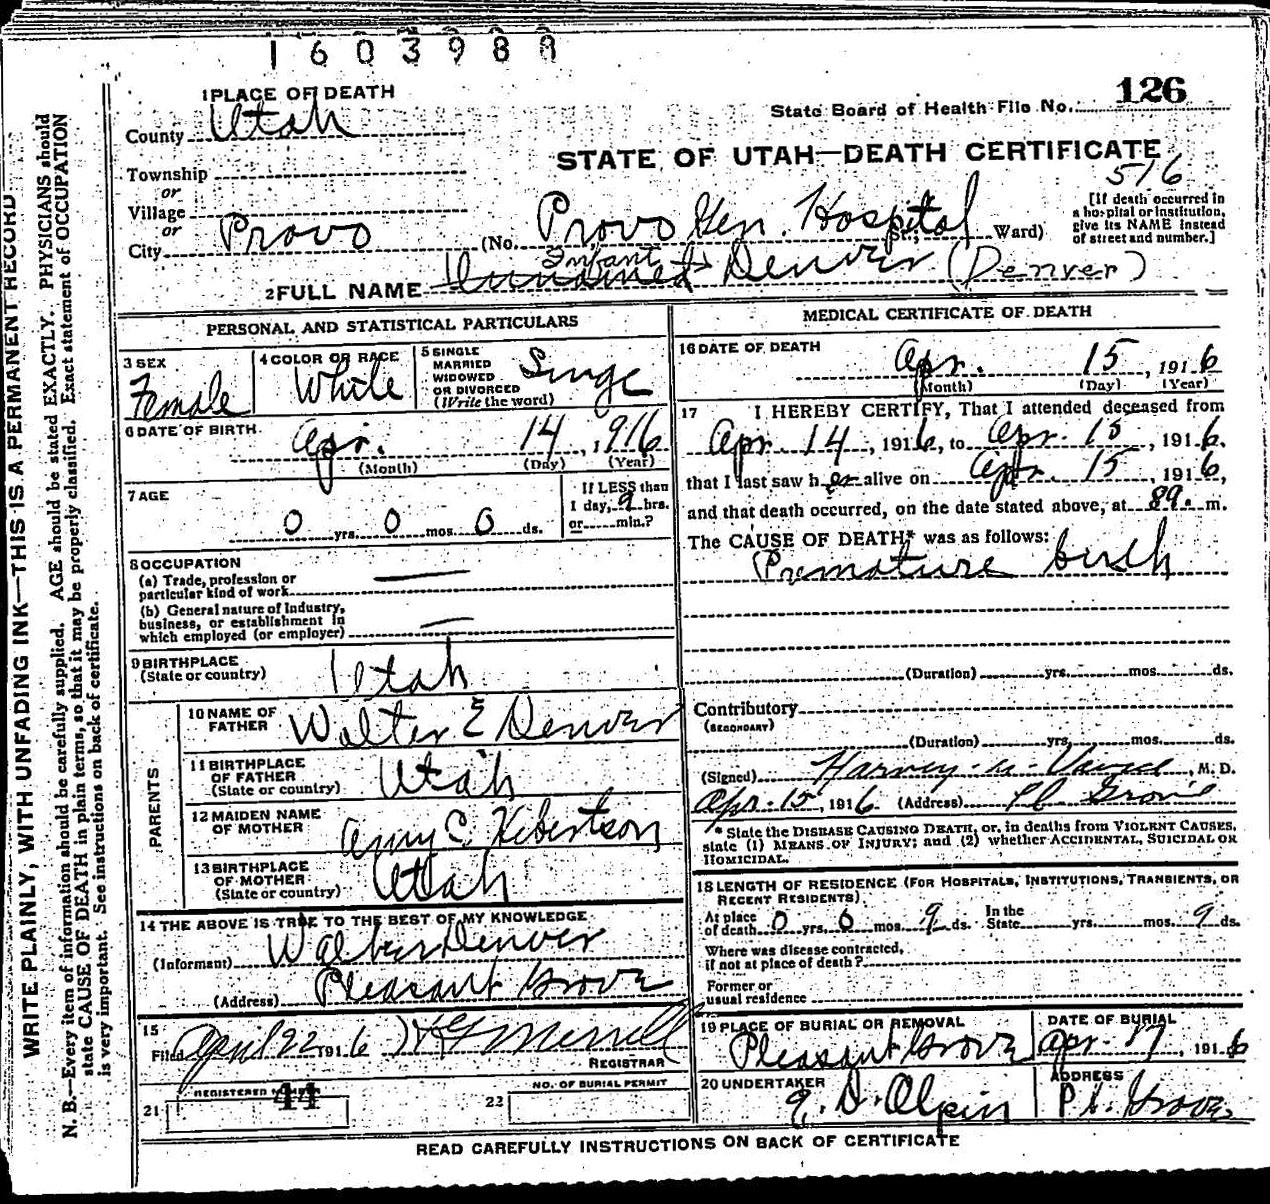 1603988
1 PLACE OF DEATH
County Utah
State Board of Health File No. 126
STATE OF UTAH—DEATH CERTIFICATE
516
Township
or
Village
or
City Provo (No. Provo Gen. Hospital St.; Ward)
[If death occurred in
a hospital or institution,
give its NAME instead
of street and number.]
Infant
2 FULL NAME Unnamed Denver (Denver)
PERSONAL AND STATISTICAL PARTICULARS
3 SEX
Female
4 COLOR OR RACE
White
5 SINGLE
MARRIED
WIDOWED
OR DIVORCED
(Write the word)
6 DATE OF BIRTH
Apr. 14, 1916
(Month) (Day) (Year)
7 AGE
0 yrs. 0 mos. 0 ds.
If LESS than
1 day, 9 hrs.
or min.?
8 OCCUPATION
(a) Trade, profession or
particular kind of work
(b) General nature of industry,
business, or establishment in
which employed (or employer)
9 BIRTHPLACE
(State or country) Utah
PARENTS
10 NAME OF
FATHER Walter E Denver
11 BIRTHPLACE
OF FATHER
(State or country) Utah
12 MAIDEN NAME
OF MOTHER Amy C. Hebertson
13 BIRTHPLACE
OF MOTHER
(State or country) Utah
14 THE ABOVE IS TRUE TO THE BEST OF MY KNOWLEDGE
(Informant) Walter Denver
(Address) Pleasant Grove
15
Filed April 22 1916 Merrill
REGISTRAR
REGISTERED
21 44
NO. OF BURIAL PERMIT
22
MEDICAL CERTIFICATE OF DEATH
16 DATE OF DEATH
Apr. 15, 1916
(Month) (Day) (Year)
17 I HEREBY CERTIFY, That I attended deceased from
Apr. 14, 1916, to Apr. 15, 1916,
that I last saw her alive on Apr. 15, 1916,
and that death occurred, on the date stated above, at m.
The CAUSE OF DEATH* was as follows:
Premature birth
(Duration) yrs. mos. ds.
Contributory
(SECONDARY)
(Duration) yrs. mos. ds.
(Signed) Harvey, M. D.
Apr. 15, 1916 (Address) Pl Grove
* State the DISEASE CAUSING DEATH, or, in deaths from VIOLENT CAUSES,
state (1) MEANS OF INJURY; and (2) whether ACCIDENTAL, SUICIDAL OR
HOMICIDAL.
18 LENGTH OF RESIDENCE (FOR HOSPITALS, INSTITUTIONS, TRANSIENTS, OR
RECENT RESIDENTS)
At place
of death 0 yrs. 0 mos. 9 ds. In the
State yrs. mos. 9 ds.
Where was disease contracted,
if not at place of death?
Former or
usual residence
19 PLACE OF BURIAL OR REMOVAL
Pleasant Grove
DATE OF BURIAL
Apr. 17, 1916
20 UNDERTAKER
Olpin
ADDRESS
Pl. Grove
READ CAREFULLY INSTRUCTIONS ON BACK OF CERTIFICATE
WRITE PLAINLY, WITH UNFADING INK—THIS IS A PERMANENT RECORD
N. B.—Every item of information should be carefully supplied. AGE should be stated EXACTLY. PHYSICIANS should
state CAUSE OF DEATH in plain terms, so that it may be properly classified. Exact statement of OCCUPATION
is very important. See instructions on back of certificate.